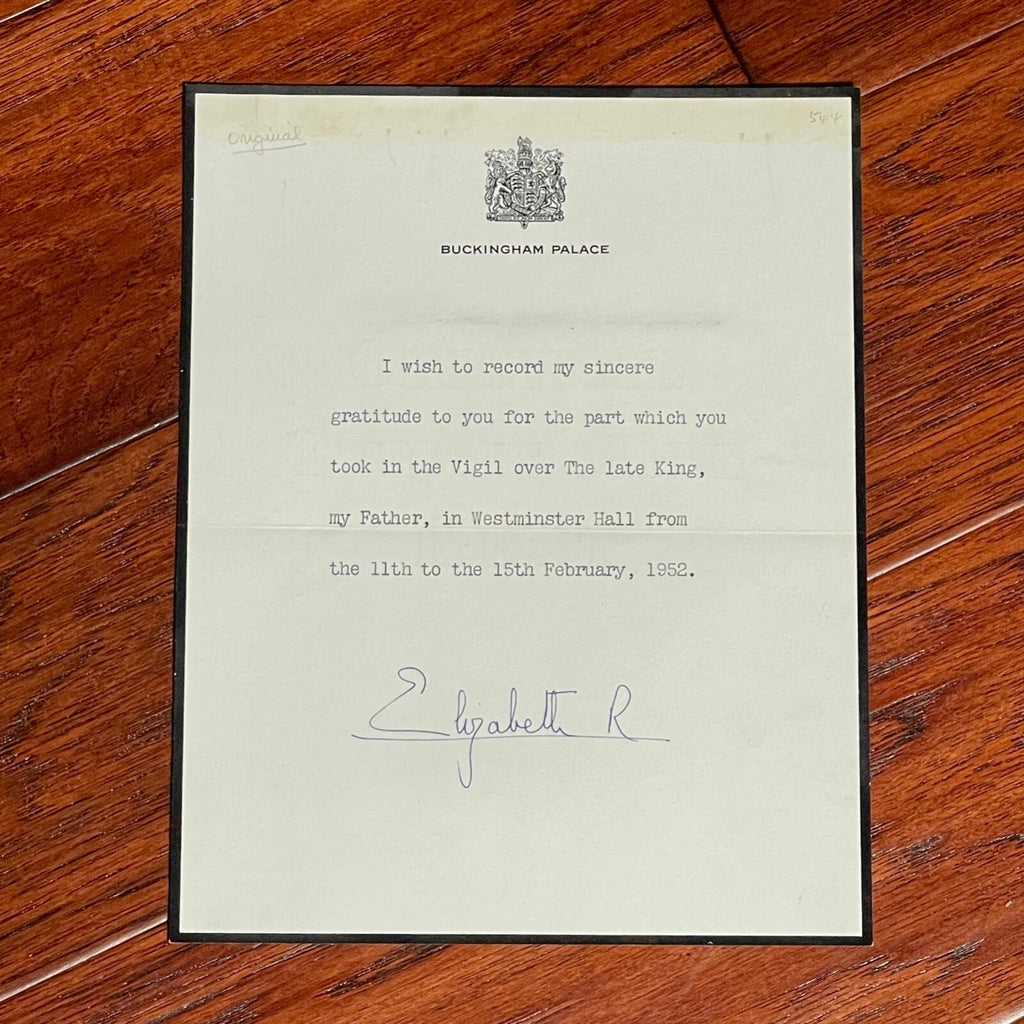 Original
544
BUCKINGHAM PALACE
I wish to record my sincere
gratitude to you for the part which you
took in the Vigil over The late King,
my Father, in Westminster Hall from
the 11th to the 15th February, 1952.
Elizabeth R